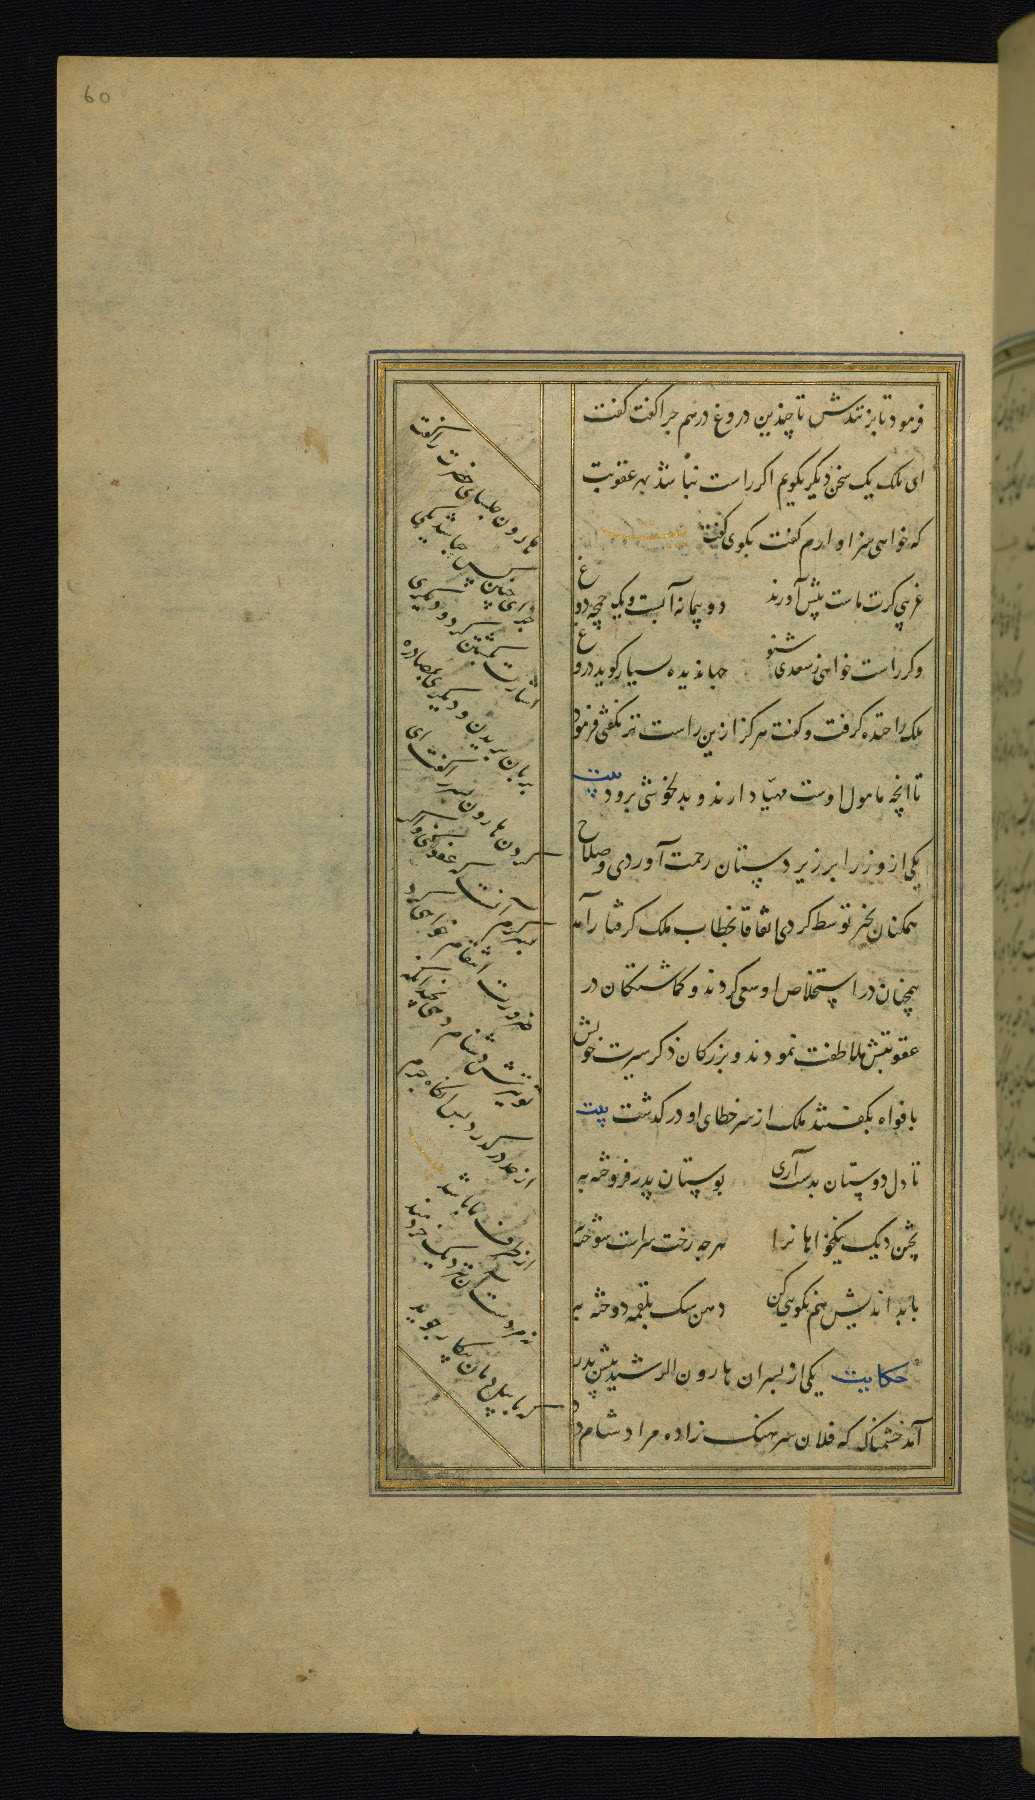 60
فرمود تا بزنندش تا چندین دروغ درهم چرا گفت گفت
ای ملک یک سخن دیگر بگویم اگر راست نباشد بهر عقوبت
که خواهی سزاوارم گفت بگوی گفت
غریبی گرت ماست پیش آورند دو پیمانه آبست و یک چمچه دوغ
وگر راست خواهی ز سعدی شنو جهاندیده بسیار گوید دروغ
ملک را خنده گرفت و گفت هرگز ازین راست تر نگفتی فرمود
تا آنچه مامول اوست مهیا دارند و بدلخوشی برود بیت
یکی از وزرا بر زیردستان رحمت آوردی و صلاح
همکنان بخیر توسط کردی اتفاقا بخطاب ملک گرفتار آمد
همچنان در استخلاص او سعی کردند و گماشتگان در
عقوبتش ملاطفت نمودند و بزرگان ذکر سیرت خوبش
بافواه بگفتند ملک از سر خطای او در گذشت بیت
تا دل دوستان بدست آری بوستان پدر فروخته به
پختن دیک نیکخواهانرا هرچه رخت سراست سوخته به
با بد اندیش هم نکویی کن دهن سک بلقمه دوخته به
حکایت یکی از پسران هارون الرشید پیش پدر
آمد خشمناک که فلان سرهنک زاده مرا دشنام داد
هارون جلسای حضرت را گفت
جزای چنین کس چه باشد یکی
اشارت بکشتن کرد و دیگری
بزبان بریدن و دیگری بمصادره
کردن هارون پسر را گفت ای
پسر کرم آنست که عفو کنی و اگر
ضرورت انتقام خواهی کرد
تو نیزش دشنام ده نچندانکه
از حد درگذرد پس آنگاه جرم
از طرف ما باشد
نه مردست آن نزدیک خردمند
که با پیل دمان پیکار جوید